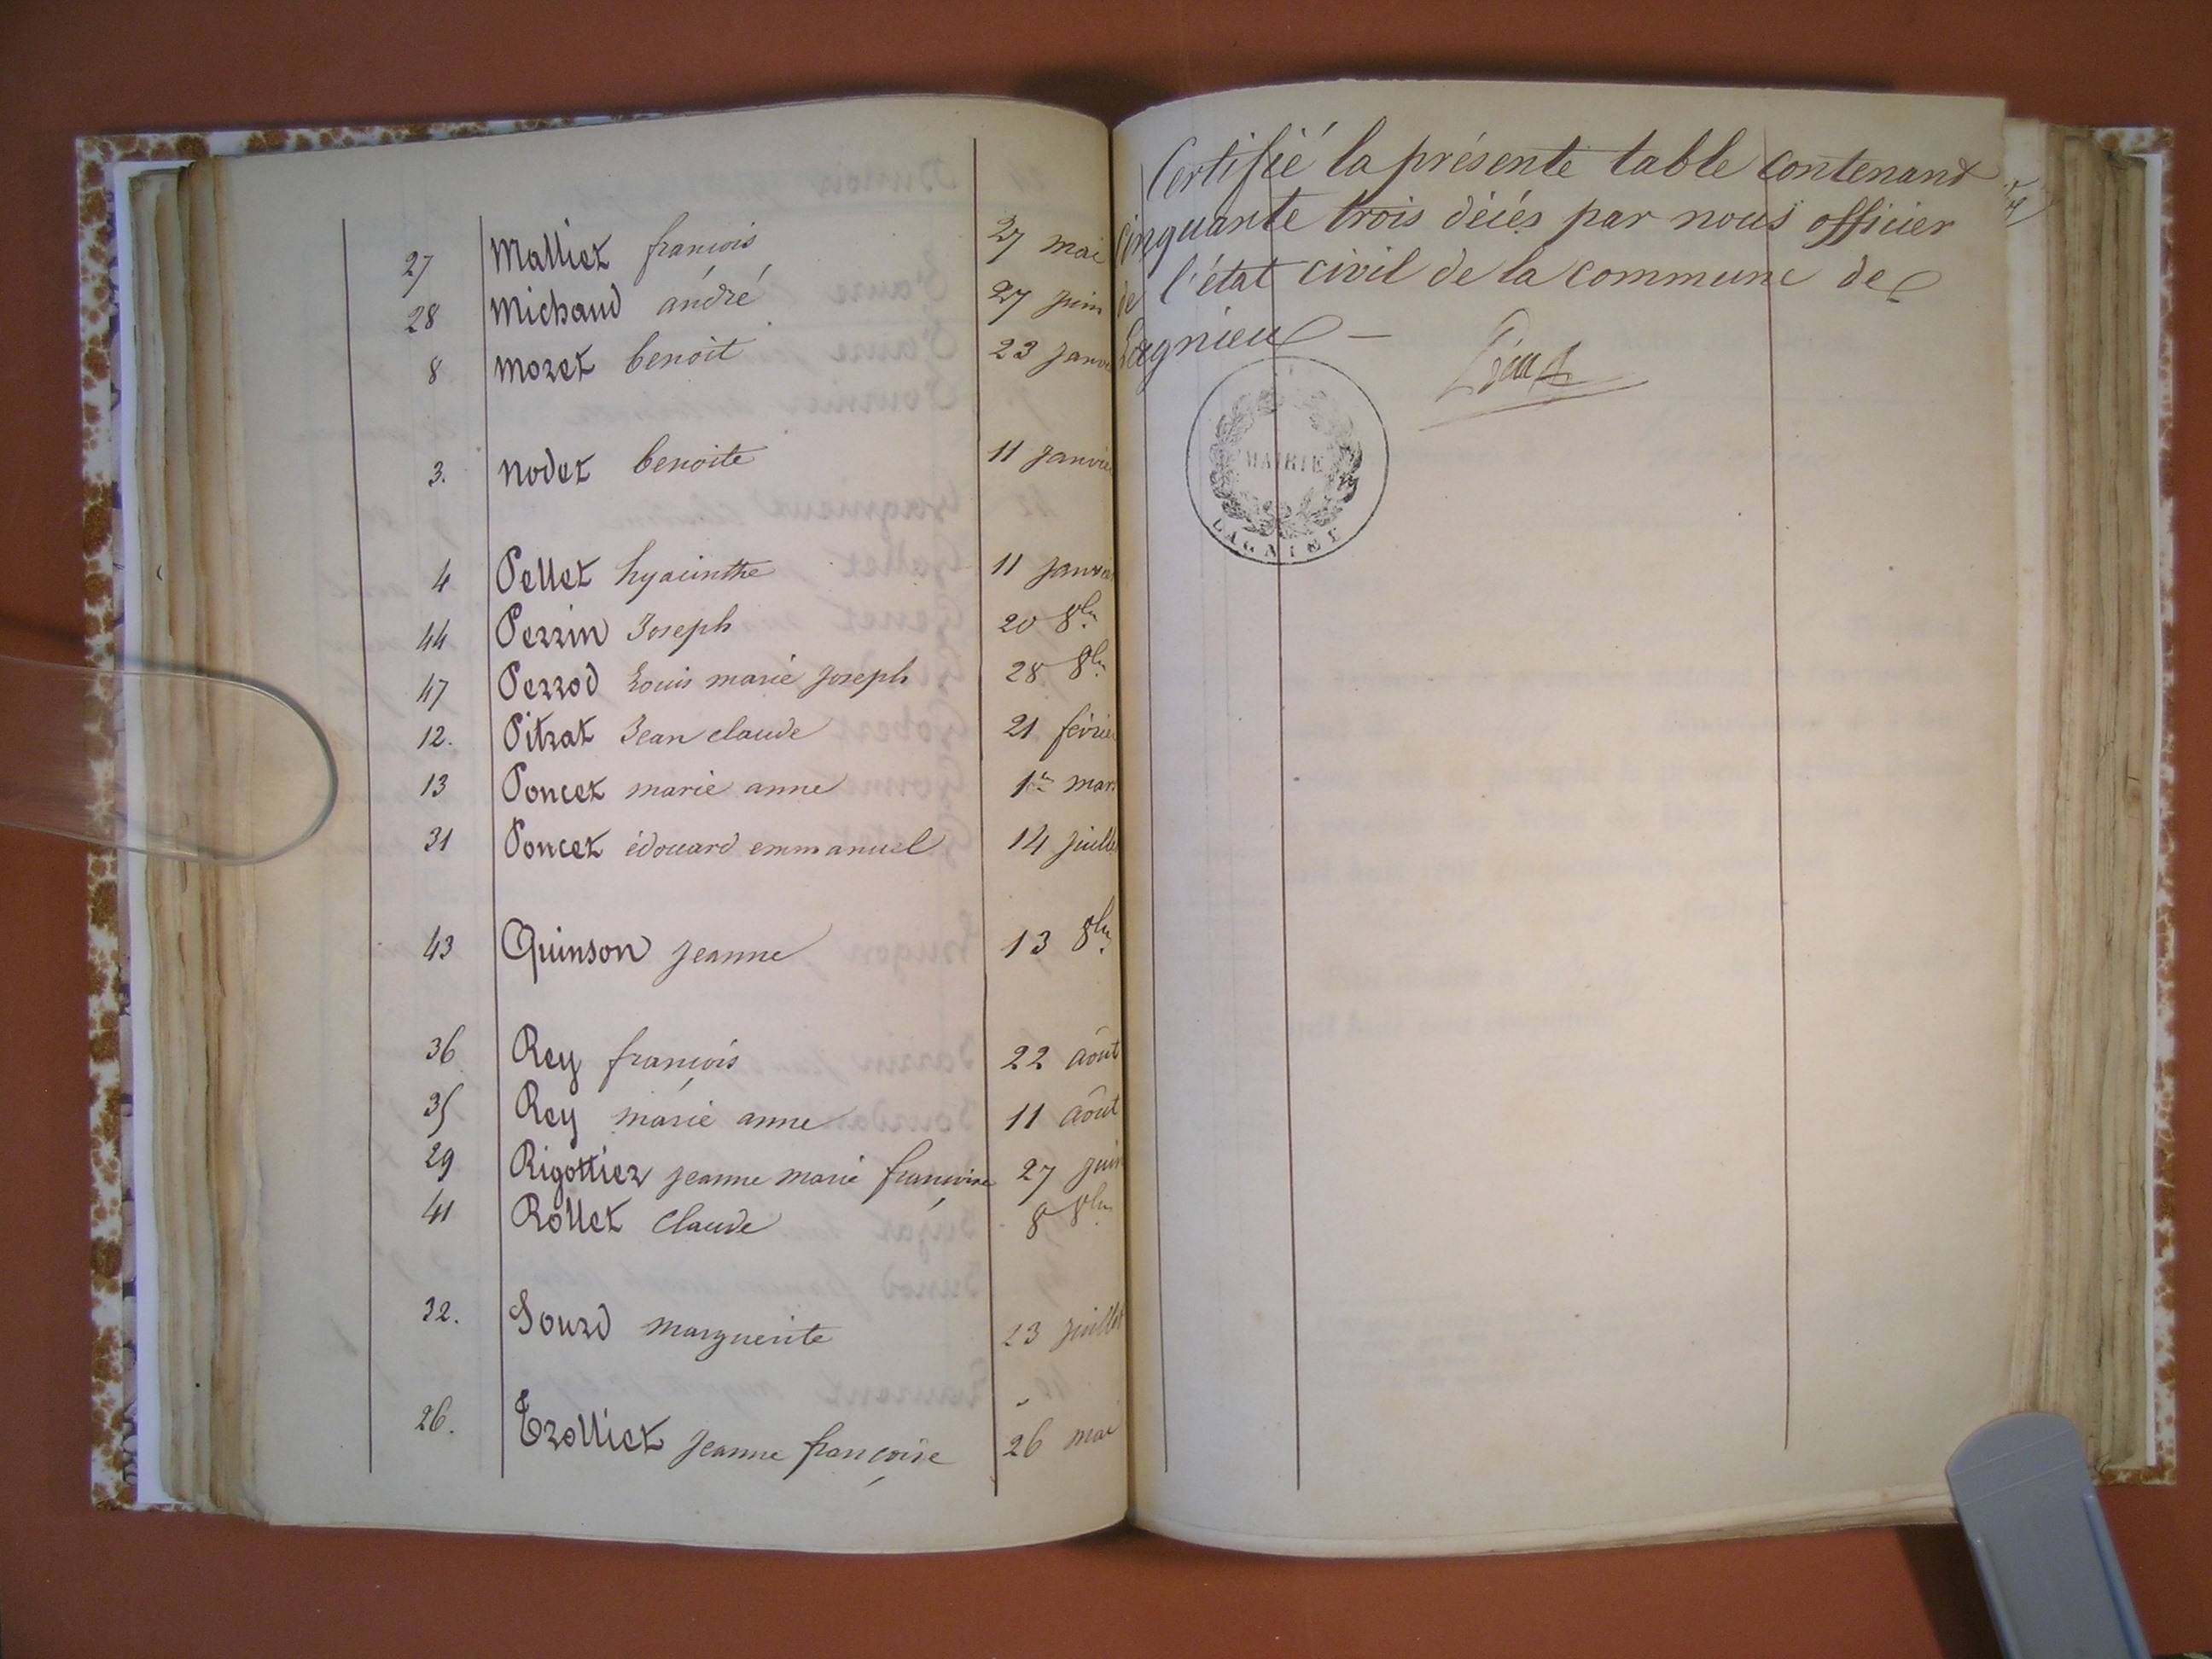 27 Malliet françois 27 mai
28 Michaud andré 27 juin
8 Moret benoit 23 janv
3. Nodet benoite 11 janvie
4 Pellet hyacinthe 11 janvie
44 Perrin Joseph 20 8bre
47 Perrod Louis marie joseph 28 8bre
12. Pitrat Jean claude 21 févrie
13 Poncet marie anne 1er mars
31 Poncet édouard emmanuel 14 juille
43 Quinson jeanne 13 8bre
36 Rey françois 22 août
35 Rey marie anne 11 août
29 Rigottier jeanne marie françoise 27 juin
41 Rollet Claude 8 8bre
32. Sourd marguerite 23 juillet
26. Trolliet jeanne françoise 26 mai
Certifié la présente table contenant
cinquante trois décés par nous officier
de l'état civil de la commune de
Lagnieu
MAIRIE
LAGNIEU